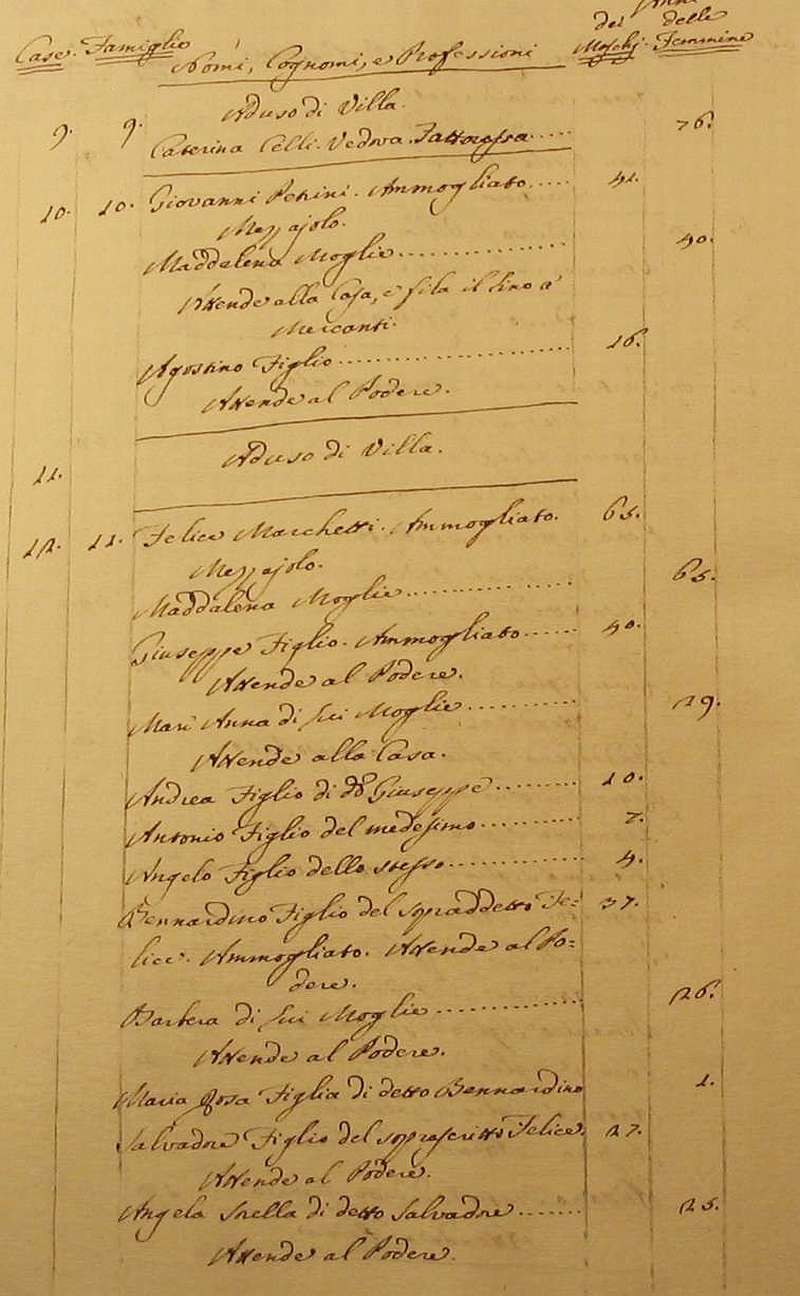 Anni
Case. Famiglie Nomi, Cognomi, e Professioni dei Maschj. delle Femmine
Aduso di Villa.
9. 9. Caterina Celli. Vedova. Fattoressa..... 76.
10. 10. Giovanni Pehini. Ammogliato..... 41.
Mezzajolo.
Maddalena Moglie................ 40.
Attende alla Casa, e fila il lino a'
Mercanti.
Agostino Figlio................ 16.
Attende al Podere.
11. Aduso di Villa.
12. 11. Felice Marchetti. Ammogliato. 65.
Mezzajolo.
Maddalena Moglie............... 65.
Giuseppe Figlio. Ammogliato...... 40.
Attende al Podere.
Mari Anna di lui Moglie.......... 29.
Attende alla Casa.
Andrea Figlio di do Giuseppe........ 10.
Antonio Figlio del medesimo......... 7.
Angelo Figlio dello stesso............ 4.
Bernardino Figlio del sopraddetto Fe= 37.
lice. Ammogliato. Attende al Po=
dere.
Barbera di lui Moglie............. 26.
Attende al Podere.
Maria Rosa Figlia di detto Bernardino 1.
Salvadore Figlio del soprascritto Felice. 27.
Attende al Podere.
Angela Sorella di detto Salvadore....... 25.
Attende al Podere.